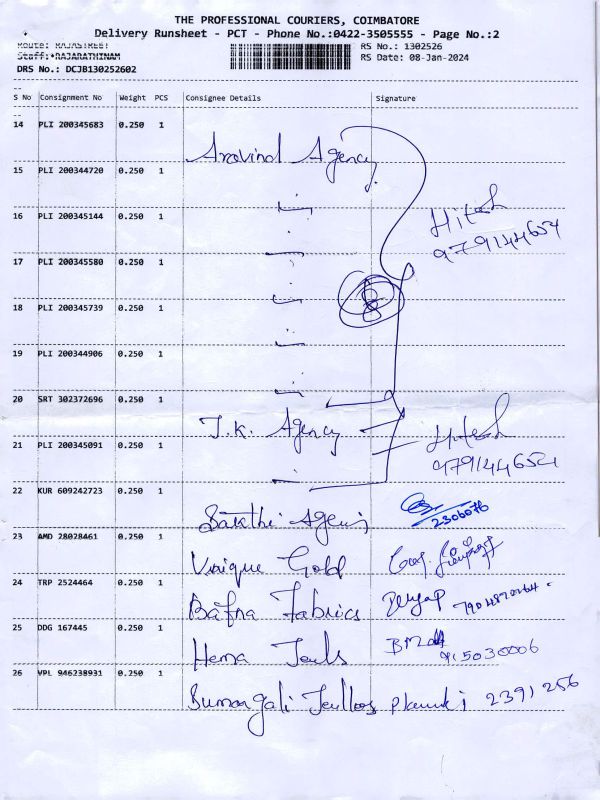 THE PROFESSIONAL COURIERS, COIMBATORE
Delivery Runsheet - PCT - Phone No.:0422-3505555 - Page No.:2
Route: RAJASTREET
RS No.: 1302526
Staff:*RAJARATHINAM
RS Date: 08-Jan-2024
DRS No.: DCJB130252602
S No Consignment No Weight PCS Consignee Details Signature
14 PLI 200345683 0.250 1 Aravind Agency
15 PLI 200344720 0.250 1
16 PLI 200345144 0.250 1 Hitesh
17 PLI 200345580 0.250 1
18 PLI 200345739 0.250 1
19 PLI 200344906 0.250 1
20 SRT 302372696 0.250 1 J.K. Agency
21 PLI 200345091 0.250 1 Hitesh
22 KUR 609242723 0.250 1 Sakthi 2306076
23 AMD 28028461 0.250 1 Unique Gold
24 TRP 2524464 0.250 1 Bafna Fabrics
25 DDG 167445 0.250 1 Hema
26 VPL 946238931 0.250 1 2391256